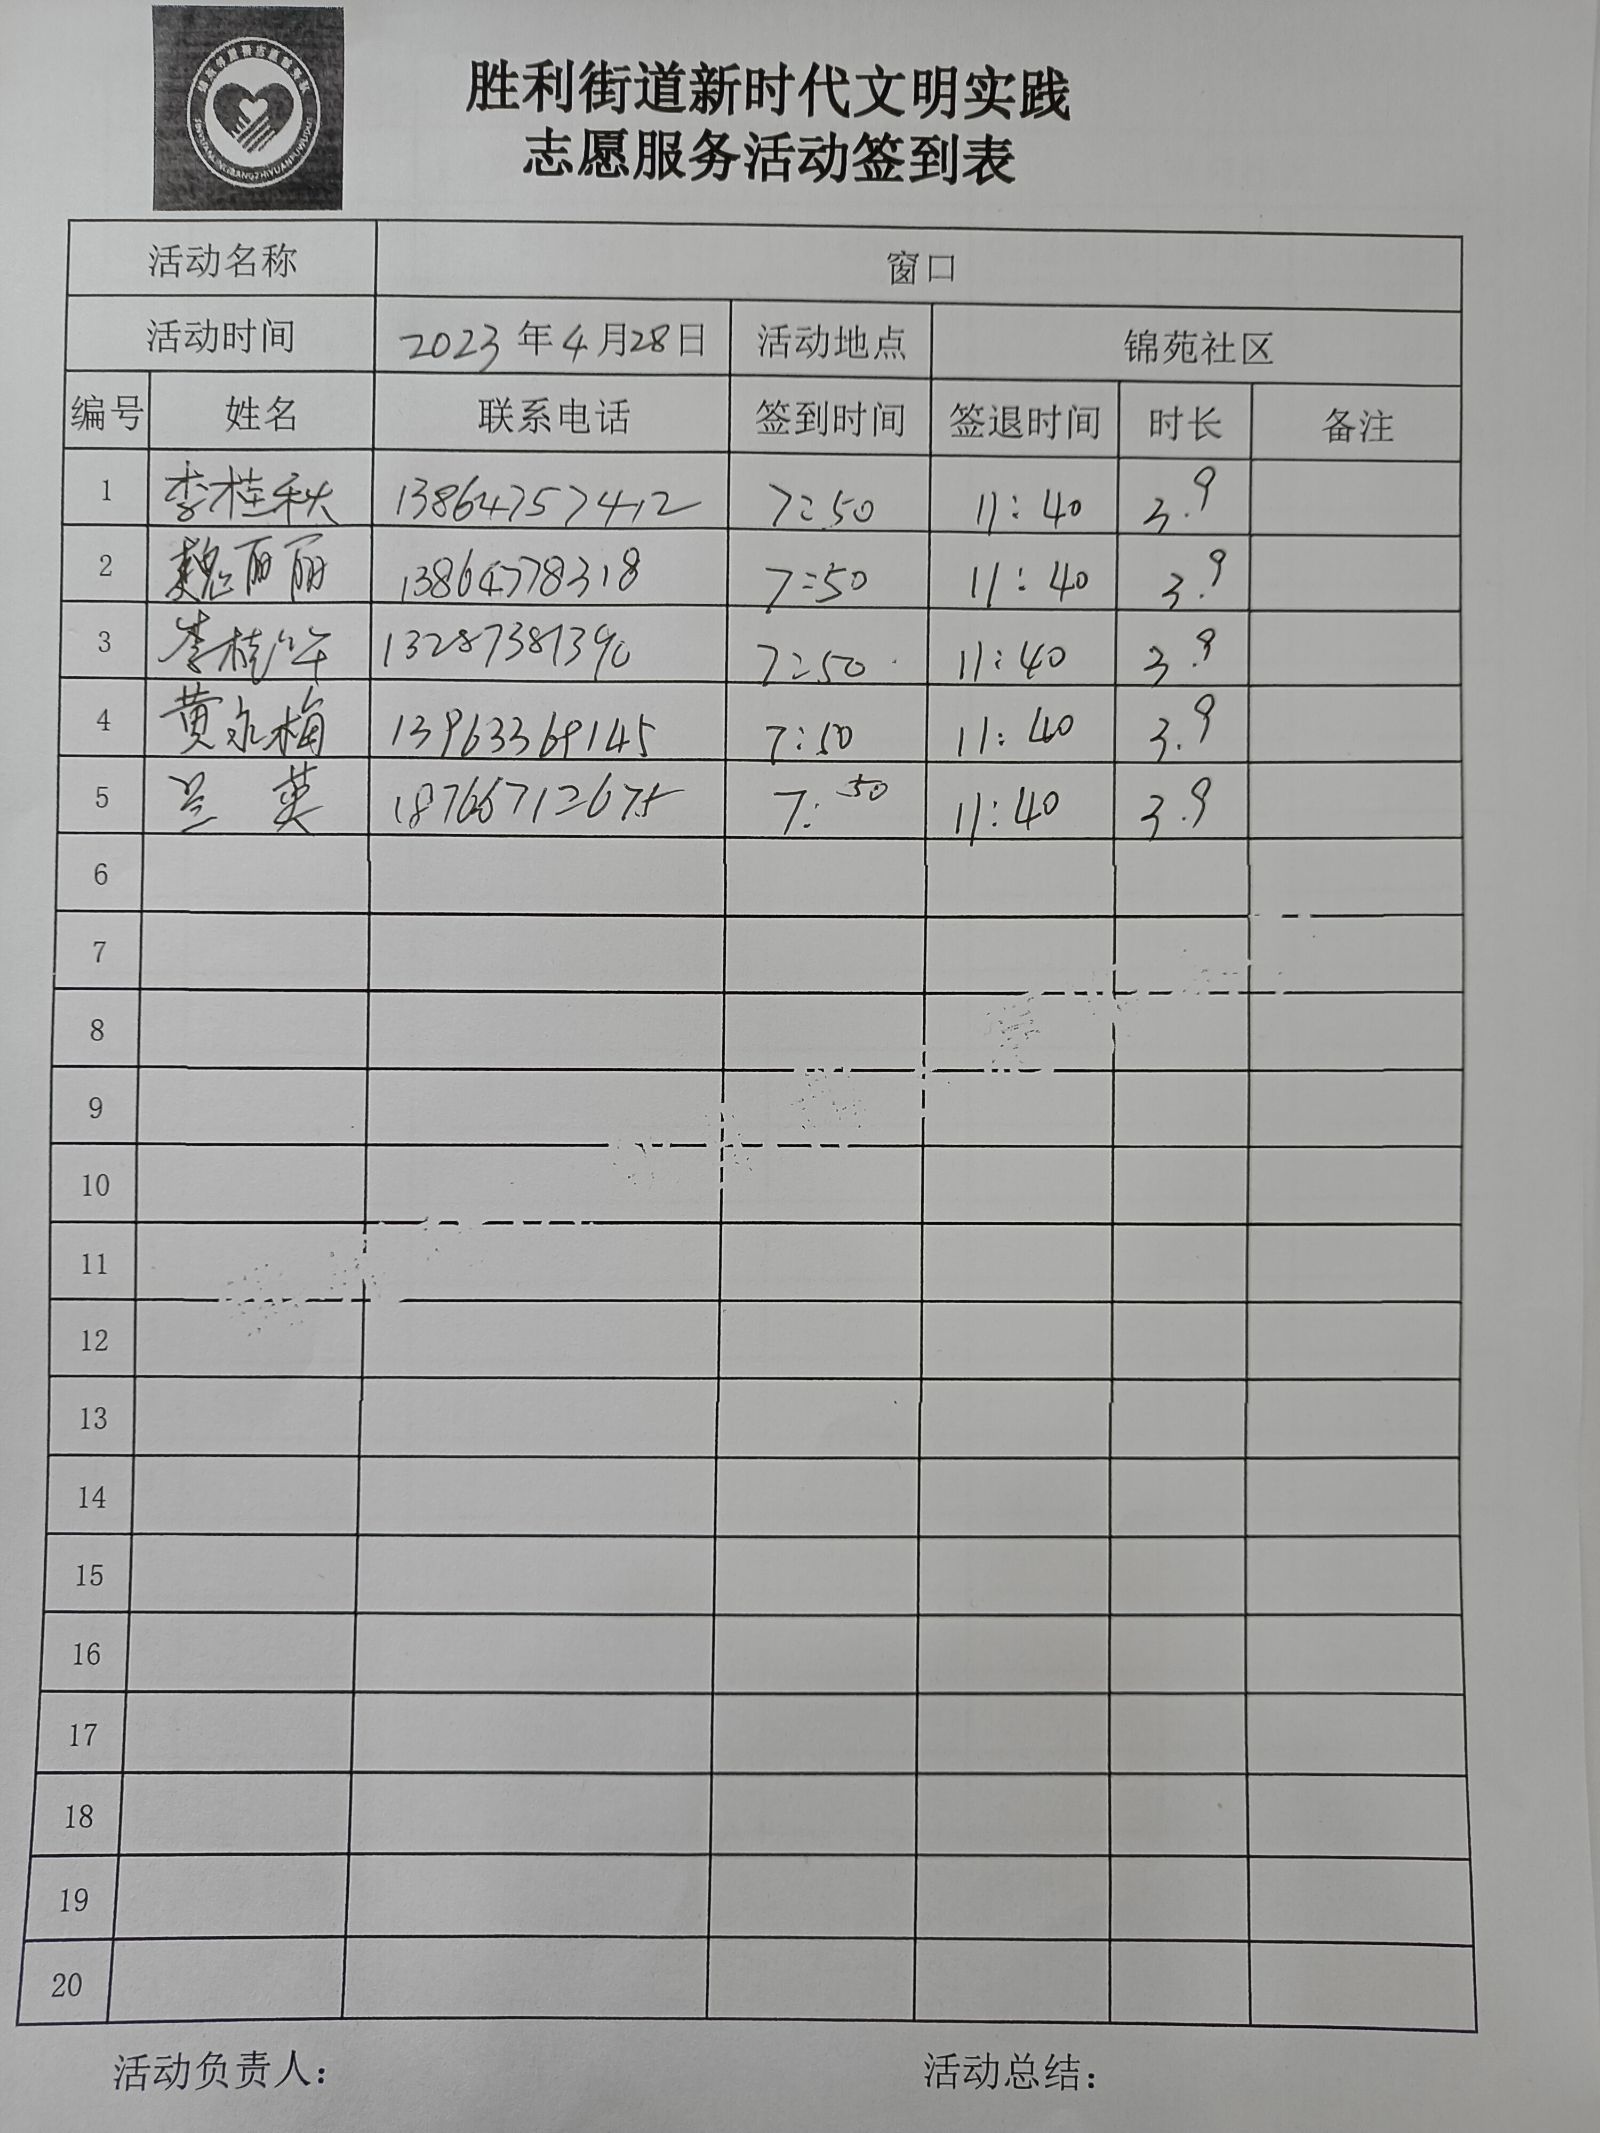 胜利街道新时代文明实践
志愿服务活动签到表
活动名称 窗口
活动时间 2023年4月28日 活动地点 锦苑社区
编号 姓名 联系电话 签到时间 签退时间 时长 备注
1 李桂秋 13864757412 7:50 11:40 3.9
2 魏丽丽 13864778318 7:50 11:40 3.9
3 李桂 13287381390 7:50 11:40 3.9
4 黄永梅 13963369145 7:50 11:40 3.9
5 兰英 18766712675 7:50 11:40 3.9
6
7
8
9
10
11
12
13
14
15
16
17
18
19
20
活动负责人： 活动总结：